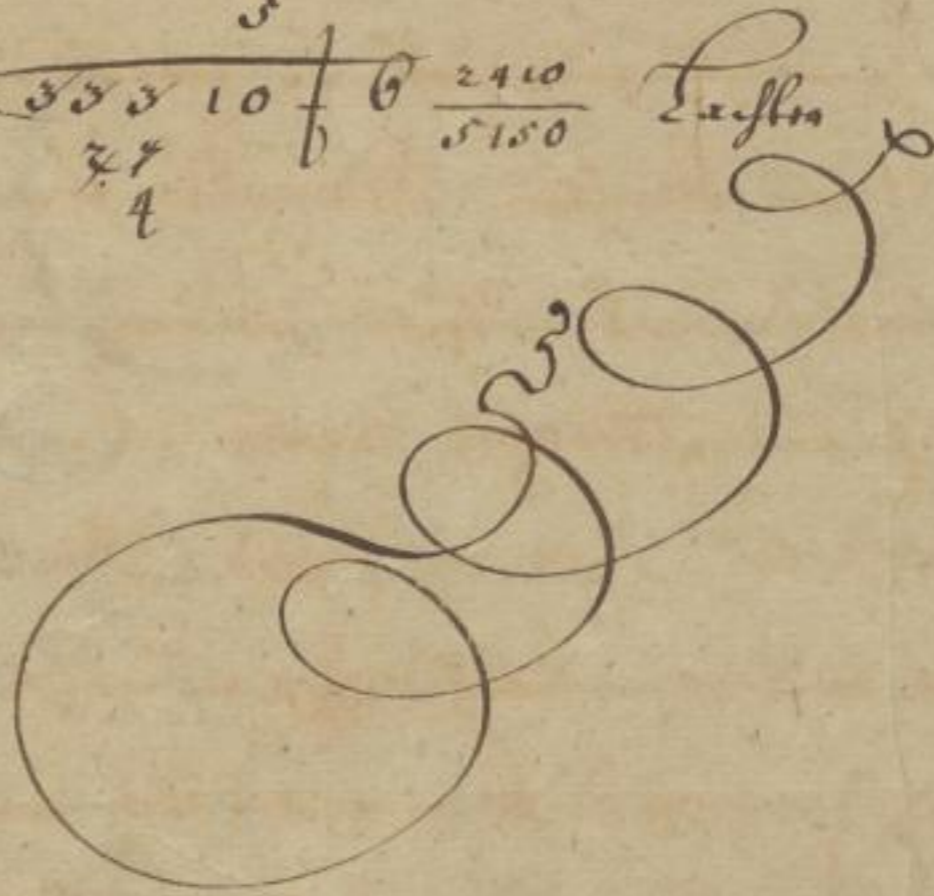 5
333 10 6 2410
5150 Lachter
77
4